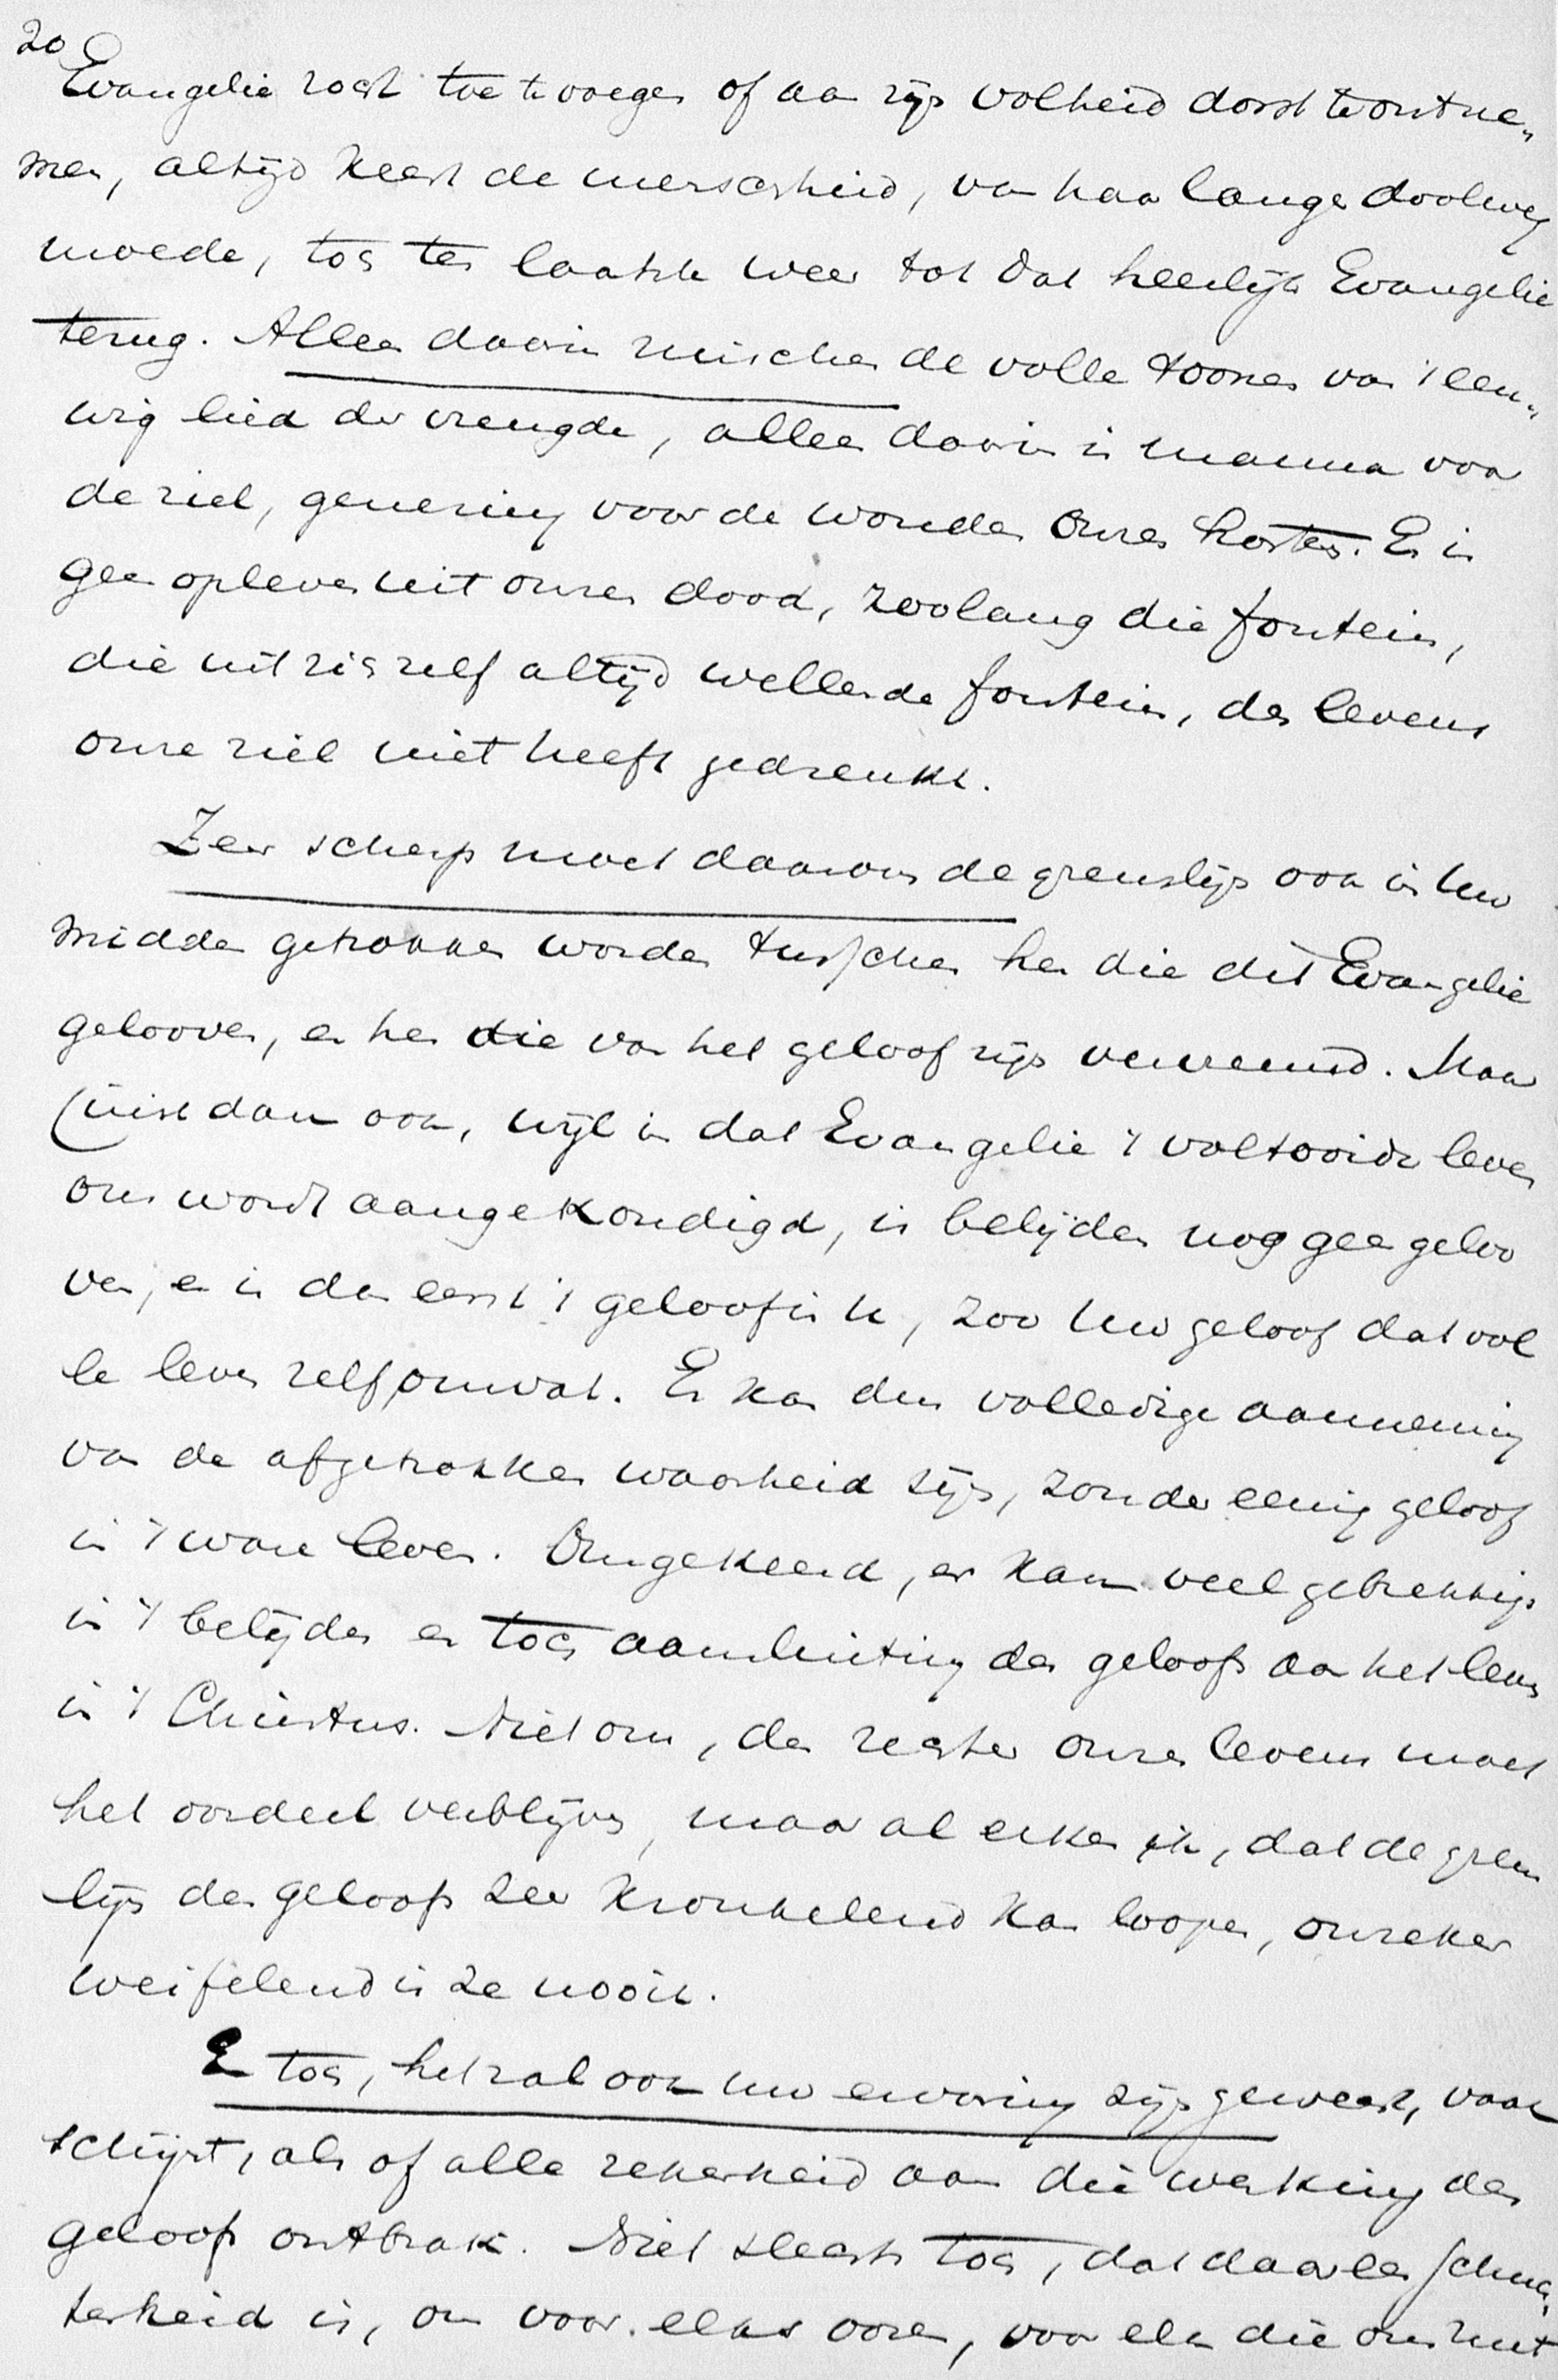 20
Evangelie zocht toe te voegen of aan zijn volheid dorst te ontne„
men, altijd keert de menschheid, van haar lange doolweg
moede, toch ten laatste weer tot dat heerlijk Evangelie
terug. Alleen daarin ruischen de volle toonen van 't eeu„
wig lied der vreugde, alleen daarin is manna voor
de ziel, genezing voor de wonden onzes harten. Er is
geen opleven uit onzen dood, zoolang die fontein,
die uit zich zelf altijd wellende fontein, des levens
onze ziel niet heeft gedrenkt.
Zeer scherp moet daarom de grenslijn ook in uw
midden getrokken worden tusschen hen die dit Evangelie
gelooven, en hen die van het geloof zijn vervreemd. Maar
juist dan ook, wijl in dat Evangelie 't voltooide leven
ons wordt aangekondigd, is belijden nog geen geloo
ven, en is dan eerst 't geloof in u, zoo uw geloof dat vol
le leven zelf omvat. Er kan dus volledige aanneming
van de afgetrokken waarheid zijn, zonder eenig geloof
in 't ware leven. Omgekeerd, er kan veel gebrekkigs
in 't belijden en toch aansluiting des geloofs aan het leven
in 't Christus. Niet ons, den rechter onzes levens moet
het oordeel verblijven, maar al erken ik, dat de grens
lijn des geloofs zeer kronkelend kan loopen, onzeker
weifelend is ze nooit.
En toch, het zal ook uw ervaring zijn geweest, vaak
schijnt, als of alle zekerheid aan die werking des
geloofs ontbrak. Niet slechts toch, dat daar een schuch„
terheid is, om voor elks ooren, voor elk die ons rust